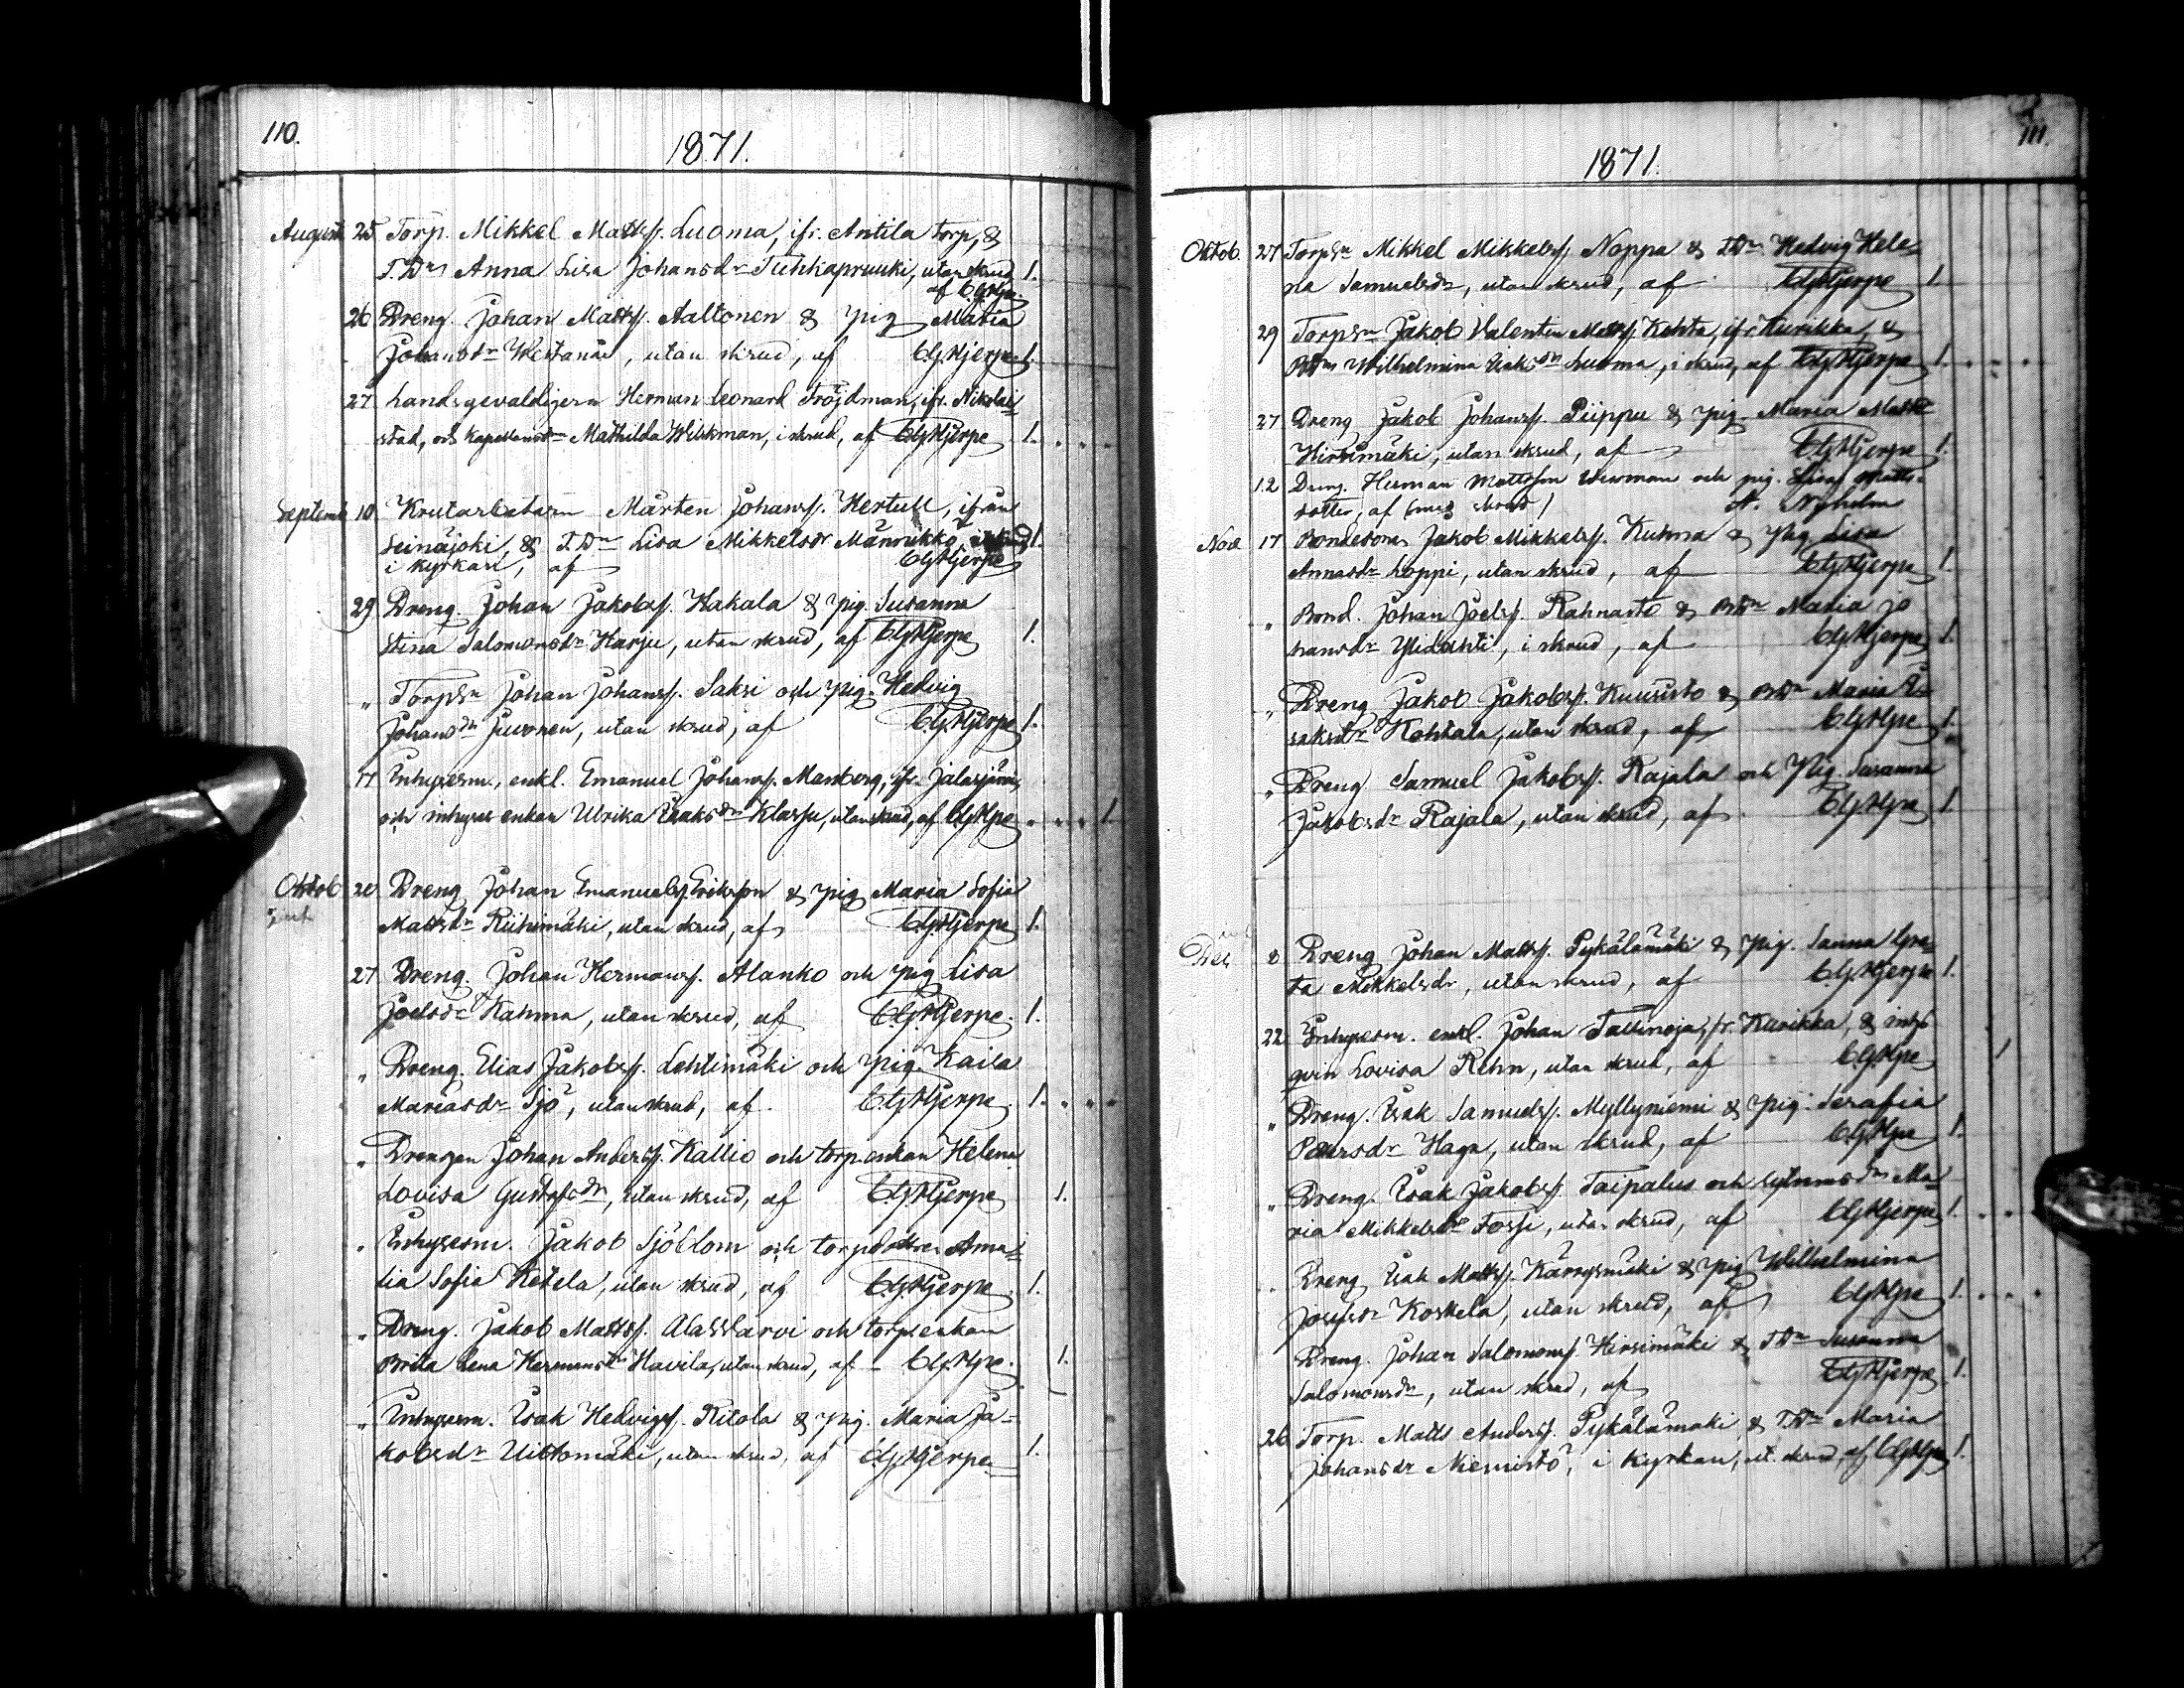 110.
1871.
Augusti 25 Torp. Mikkel Mattss. Luoma, ifr. Antila torp, &
T.Dr Anna Lisa Johansdr Tuhkapruuki, utan skrud 1.
af CGHjpe.
26 Dreng. Johan Mattss. Aaltonen & pig Maria
Johansdr Westanå, utan skrud, af CGHjerpe 1.
27 Landsgevaldigern Herman Leonard Fröjdman, ifr. Nikolai-
stad, och Kapellansdr Mathilda Wilkman, i skrud, af CGHjerpe 1.
Septemb 10 Krutarbetaren Mårten Johanss. Hertull, ifrån
Seinäjoki, & T.Dr Lisa Mikkelsdr Männikkö, 1.
i kyrkan, af CGHjerpe
29 Dreng. Johan Jakobss. Hakala & pig. Susanna
Stina Salomonsdr Harju, utan skrud, af CGHjerpe 1.
" TorpSn Johan Johanss. Saksi och pig. Hedvig
Johansdr Juvonen, utan skrud, af CGHjerpe 1.
17 Inhysesm., enkl. Emanuel Johanss. Manberg, ifr. Jalasjärvi,
och inhyses enkan Ulrika Isaksdr Klasju, utan skrud, af CGHjpe 1.
Oktob 20 Dreng Johan Emanuelss. Eriksson & pig Maria Sofia
Mattsdr Riihimäki, utan skrud, af CGHjerpe 1.
27 Dreng. Johan Hermanss. Alanko och pig Lisa
Joelsdr Kahma, utan skrud, af CGHjerpe. 1.
" Dreng. Elias Jakobss. Lehtimäki och pig. Kaisa
Mariasdr Sjö, utan skrud, af CGHjerpe 1.
" Drengen Johan Anderss. Kallio och torp.enkan Helena
Lovisa Gustafsdr, utan skrud, af CGHjerpe 1.
" Inhysesm. Jakob Sjöblom och torpdottren Ama-
lia Sofia Ketela, utan skrud, af CGHjerpe 1.
" Dreng. Jakob Mattss. Alasstarvi och torpsenkan
Brita Lena Hermansdr Havila, utan skrud, af CGHjpe. 1.
" Inhysesm. Isak Hedvigss. Ritola & pig. Maria Ja-
kobsdr Uittomäki, utan skrud, af CGHjerpe 1.
111.
1871.
Oktob. 27 TorpSn Mikkel Mikkelss. Noppa & TDr Hedvig Hele-
na Samuelsdr, utan skrud, af CGHjerpe 1.
29 TorpSn Jakob Valentin Mattss. Kohta, ifr. Kurikka, &
BDr Wilhelmina Isaksdr Luoma, i skrud, af CGHjerpe 1.
27 Dreng Jakob Johanss. Piippu & pig. Maria Mattsdr
Hirsimäki, utan skrud, af CGHjerpe 1.
12 Dreng. Herman Mattsson Wirman och pig. Lisa Matts-
dotter, af A. Nyholm
Nov 17 Bondesonen Jakob Mikkelss. Kuhna & Pig Lisa
Annasdr Loppi, utan skrud, af CGHjerpe 1.
" Bond. Johan Joelss. Rahnasto & BDr Maria Jo
hansdr Ylidahti, i skrud, af CGHjerpe 1.
" Dreng Jakob Jakobss. Kuusisto & BDr Maria I-
saksdr Kohtala, utan skrud, af CGHjpe 1.
" Dreng Samuel Jakobss. Rajala och Pig. Susanna
Jakobsdr Rajala, utan skrud, af CGHjpe 1.
Dec 8 Dreng Johan Mattss. Pykälämäki & pig. Sanna Gre-
ta Mikkelsdr, utan skrud, af CGHjerpe 1.
22 Inhysesm. enkl. Johan Tallinoja, fr. Kurikka, & inhys
qvin Lovisa Rehn, utan skrud, af CGHjpe 1
" Dreng. Isak Samuelss. Myllyniemi & pig. Serafia
Petersdr Haga, utan skrud, af CGHjpe 1.
" Dreng. Isak Jakobss. Taipalus och Ma-
ria Mikkelsdr Forss, utan skrud, af CGHjerpe 1.
" Dreng Isak Mattss. Kärrysmäki & pig Wilhelmina
Josefsdr Koskela, utan skrud, af CGHjpe 1.
Dreng. Johan Salomonss. Hirsimäki & TDr Susanna
Salomonsdr, utan skrud, af CGHjerpe 1.
26 Torp. Matts Anderss. Pykälämäki & TDr Maria
Johansdr Niemistö, i kyrkan, ut. skrud, af CGHjpe 1.